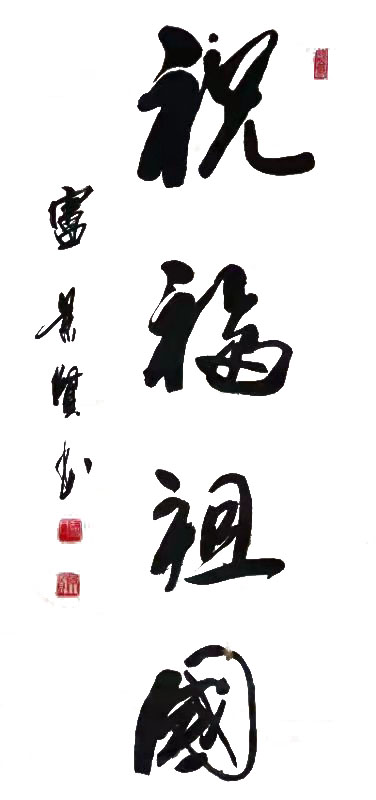 祝福祖國
富景賢书